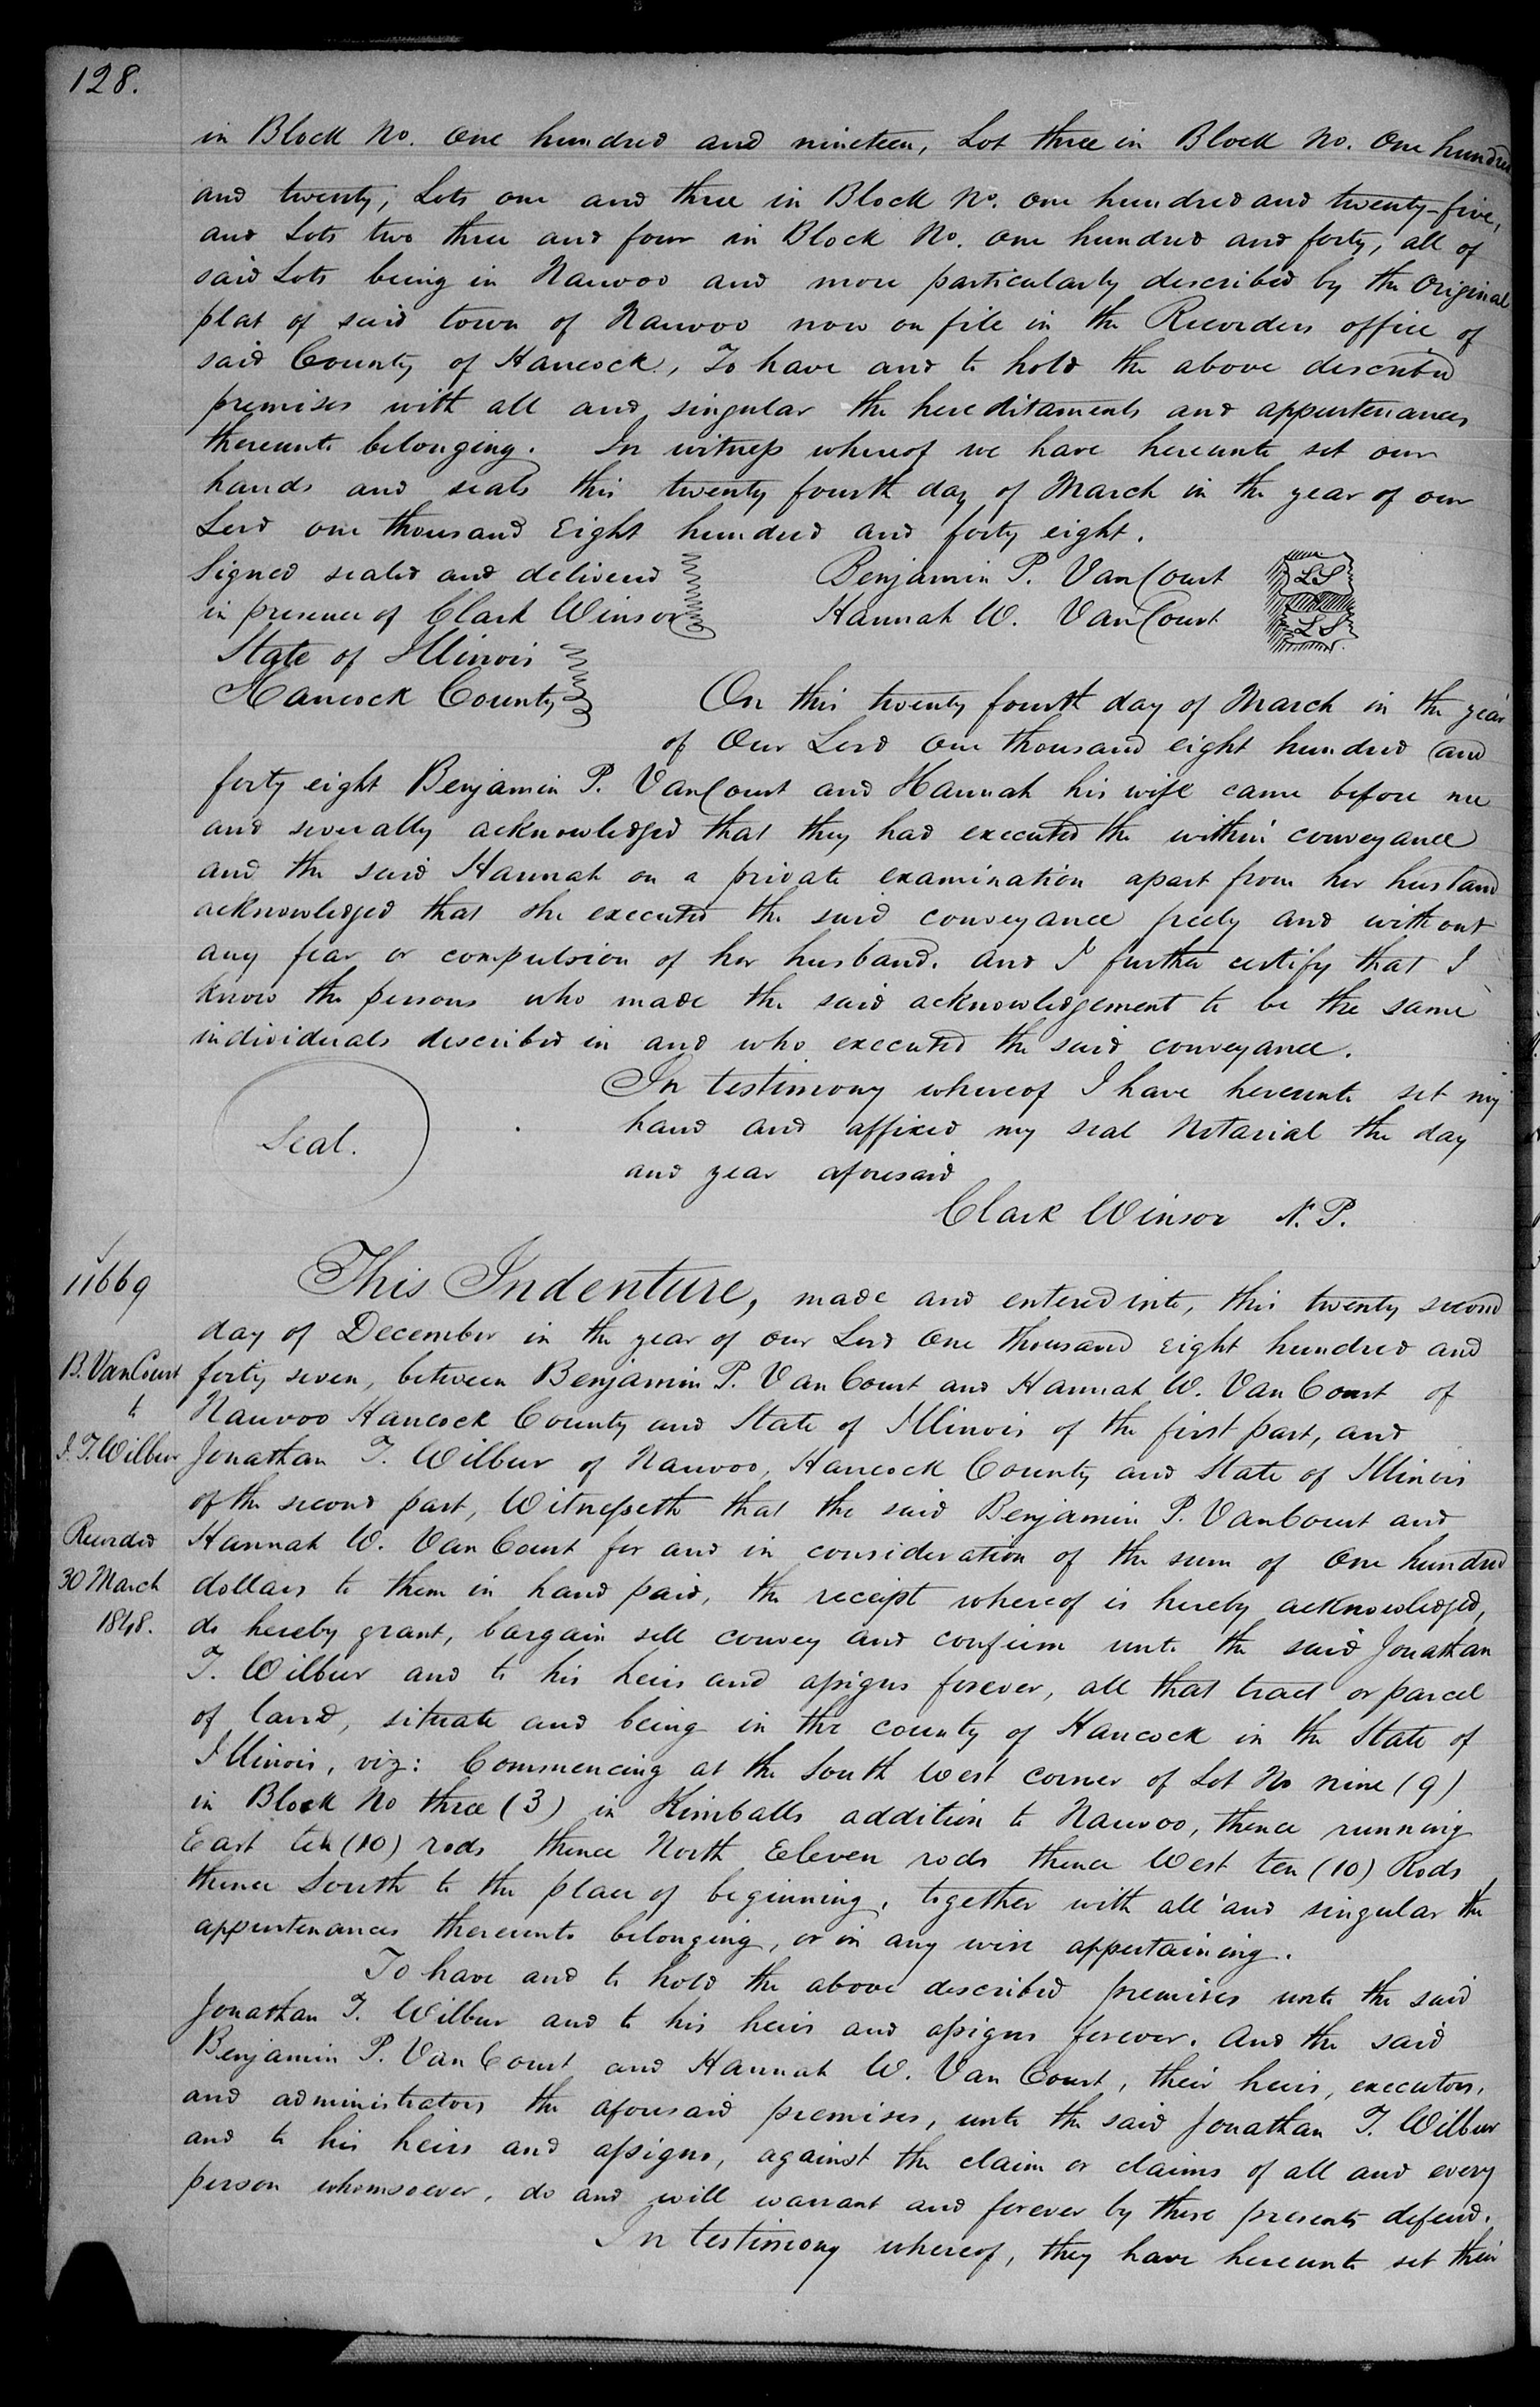 128.
in Block No. One hundred and nineteen, Lot three in Block No. One hundred
and twenty, Lots one and three in Block No. one hundred and twenty-five,
and Lots two three and four in Block No. one hundred and forty, all of
said Lots being in Nauvoo and more particularly described by the Original
plat of said town of Nauvoo now on file in the Recorders office of
said County of Hancock, To have and to hold the above described
premises with all and singular the hereditaments and appurtenances
thereunto belonging. In witness whereof we have hereunto set our
hands and seals this twenty fourth day of March in the year of our
Lord one thousand Eight hundred and forty eight.
Signed sealed and delivered
in presence of Clark Winsor
Benjamin P. VanCourt LS
Hannah W. VanCourt LS
State of Illinois
Hancock County
On this twenty fourth day of March in the year
of Our Lord One thousand eight hundred and
forty eight Benjamin P. VanCourt and Hannah his wife came before me
and severally acknowledged that they had executed the within conveyance
and the said Hannah on a private examination apart from her husband
acknowledged that she executed the said conveyance freely and without
any fear or compulsion of her husband. And I further certify that I
know the persons who made the said acknowledgement to be the same
individuals described in and who executed the said conveyance.
In testimony whereof I have hereunto set my
hand and affixed my seal Notarial the day
and year aforesaid
Seal.
Clark Winsor N. P.
11669
B. VanCourt
to
J. T. Wilbur
Recorded
30 March
1848.
This Indenture, made and entered into, this twenty second
day of December in the year of our Lord One thousand eight hundred and
forty seven, between Benjamin P. VanCourt and Hannah W. VanCourt of
Nauvoo Hancock County and State of Illinois of the first part, and
Jonathan T. Wilbur of Nauvoo, Hancock County and State of Illinois
of the second part, Witnesseth that the said Benjamin P. VanCourt and
Hannah W. VanCourt for and in consideration of the sum of One hundred
dollars to them in hand paid, the receipt whereof is hereby acknowledged,
do hereby grant, bargain sell convey and confirm unto the said Jonathan
T. Wilbur and to his heirs and assigns forever, all that tract or parcel
of land, situate and being in the county of Hancock in the State of
Illinois, viz: Commencing at the South West corner of Lot No nine (9)
in Block No three (3) in Kimballs addition to Nauvoo, thence running
East ten (10) rods thence North Eleven rods thence West ten (10) Rods
thence South to the place of beginning, together with all and singular the
appurtenances thereunto belonging, or in any wise appertaining.
To have and to hold the above described premises unto the said
Jonathan T. Wilbur and to his heirs and assigns forever. And the said
Benjamin P. VanCourt and Hannah W. Van Court, their heirs, executors,
and administrators the aforesaid premises, unto the said Jonathan T. Wilbur
and to his heirs and assigns, against the claim or claims of all and every
person whomsoever, do and will warrant and forever by these presents defend.
In testimony whereof, they have hereunto set their